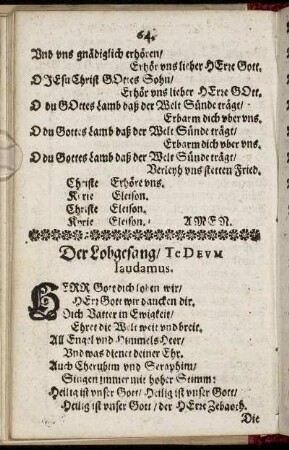 64.
Vnd vns gnädiglich erhören/
Erhör vns lieber HErre Gott.
O JEsu Christ GOttes Sohn/
Erhör vns lieber HErre GOtt.
O du GOttes Lamb daß der Welt Sünde trägt/
Erbarm dich vber vns.
O du Gottes Lamb daß der Welt Sünde trägt/
Erbarm dich vber vns.
O du Gottes Lamb daß der Welt Sünde trägt/
Verleyh vns stetten Fried.
Christe Erhöre vns.
Kyrie Eleison.
Christe Eleison.
Kyrie Eleison. AMEN.
Der Lobgesang/ Te DEVM
laudamus.
HERR Gott dich loben wir/
HErr Gott wir dancken dir.
Dich Vatter in Ewigkeit/
Ehret die Welt weit vnd breit.
All Engel vnd Himmels Heer/
Vnd was dienet deiner Ehr.
Auch Cherubim vnd Seraphim/
Singen immer mit hoher Stimm:
Heilig ist vnser Gott/ Heilig ist vnser Gott/
Heilig ist vnser Gott/ der HErre Zebaoth.
Die